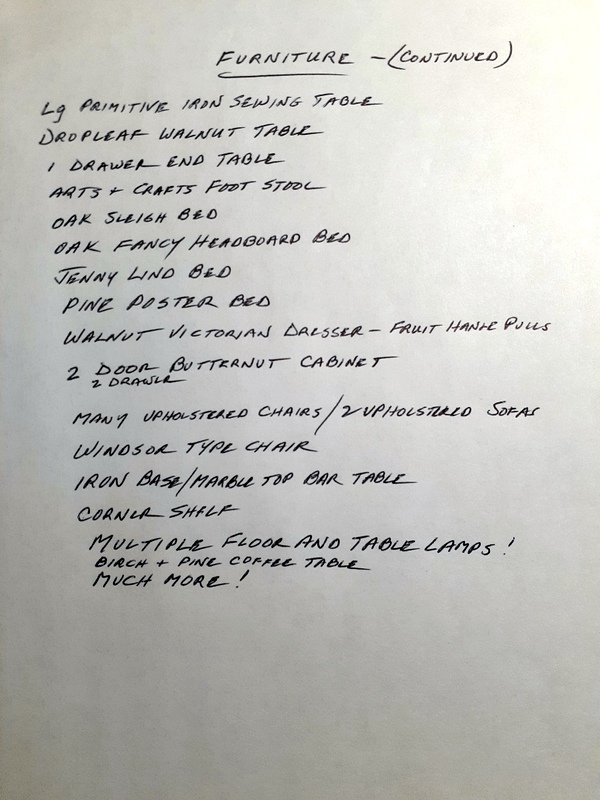 FURNITURE - (CONTINUED)
Lg PRIMITIVE IRON SEWING TABLE
DROPLEAF WALNUT TABLE
1 DRAWER END TABLE
ARTS + CRAFTS FOOT STOOL
OAK SLEIGH BED
OAK FANCY HEADBOARD BED
JENNY LIND BED
PINE POSTER BED
WALNUT VICTORIAN DRESSER - FRUIT HANLE PULLS
2 DOOR BUTTERNUT CABINET
2 DRAWER
MANY UPHOLSTERED CHAIRS/2 UPHOLSTERED SOFAS
WINDSOR TYPE CHAIR
IRON BASE/MARBLE TOP BAR TABLE
CORNER SHELF
MULTIPLE FLOOR AND TABLE LAMPS!
BIRCH + PINE COFFEE TABLE
MUCH MORE!